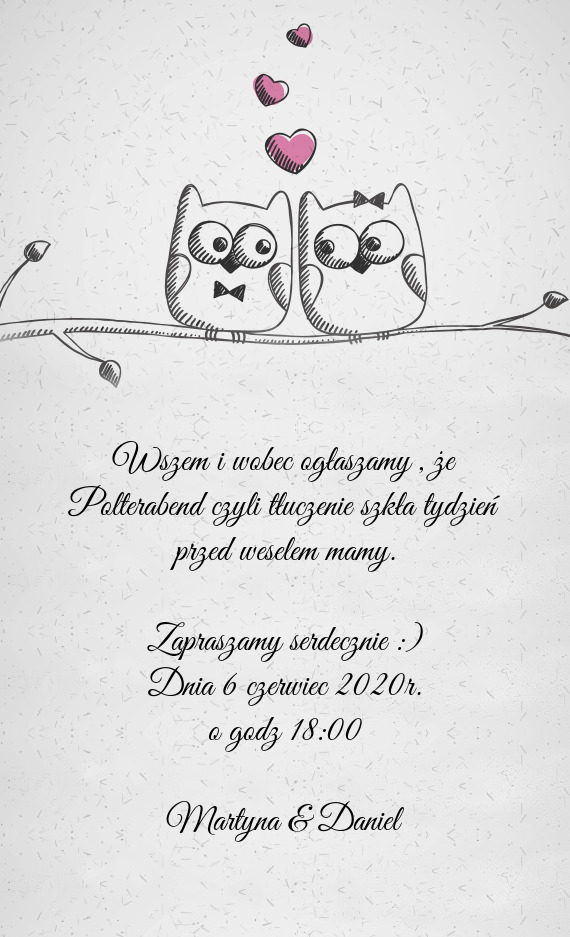 Wszem i wobec ogłaszamy , że
Polterabend czyli tłuczenie szkła tydzień
przed weselem mamy.
Zapraszamy serdecznie :)
Dnia 6 czerwiec 2020r.
o godz 18:00
Martyna & Daniel